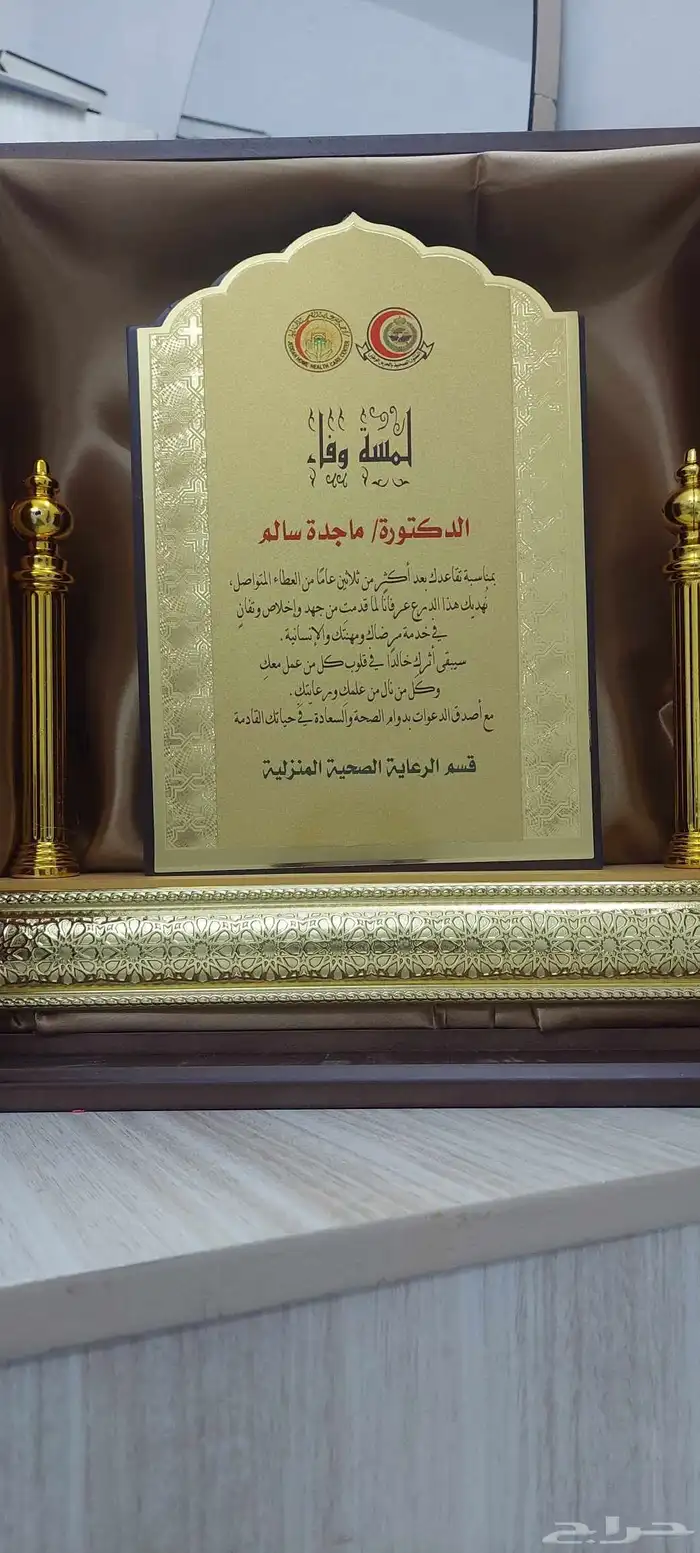 JEDDAH HOME HEALTH CARE CENTER
لمسة وفاء
الدكتورة/ ماجدة سالم
بمناسبة تقاعدك بعد أكثر من ثلاثين عامًا من العطاء المتواصل،
نُهديك هذا الدرع عرفانًا لما قدمتِ من جهد وإخلاص وتفانٍ
في خدمة مرضاك ومهنتك والإنسانية.
سيبقى أثرك خالدًا في قلوب كل من عمل معكِ
وكل من نال من علمك ورعايتكِ.
مع أصدق الدعوات بدوام الصحة والسعادة في حياتك القادمة
قسم الرعاية الصحية المنزلية
حراج